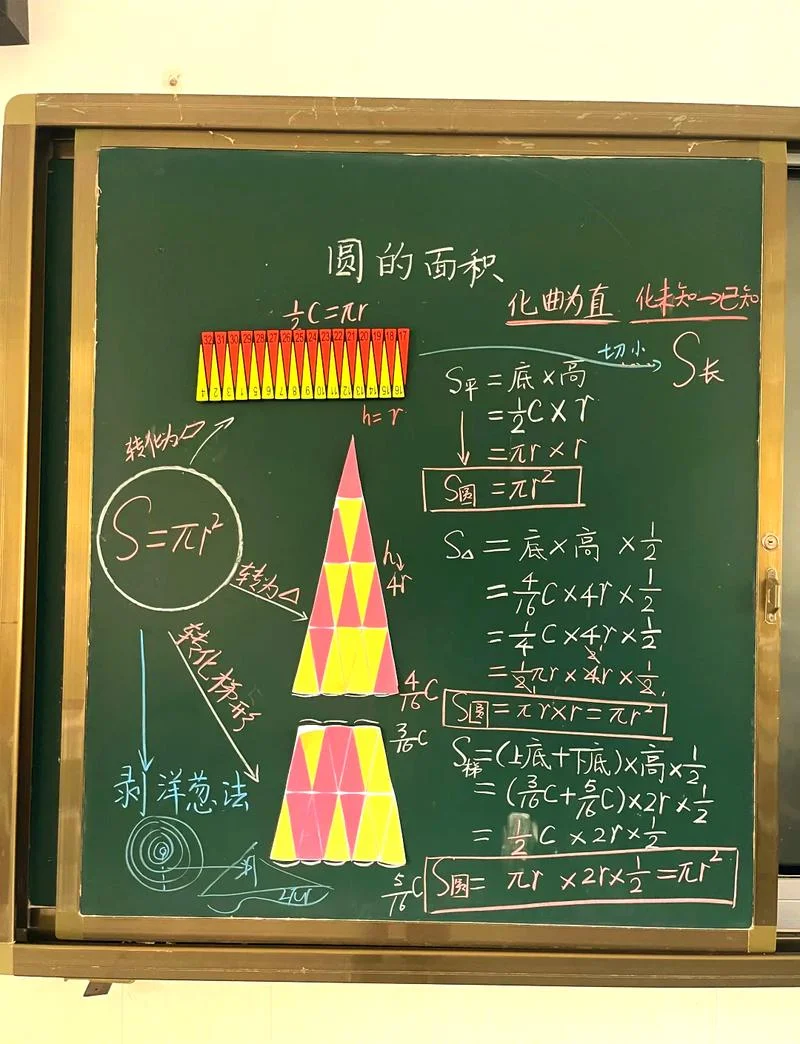 圆的面积
化曲为直 化未知→已知
½C=πr
32 31 30 29 28 27 26 25 24 23 22 21 20 19 18 17
1 2 3 4 5 6 7 8 9 10 11 12 13 14 15 16
h=r
切小
S长
S平=底×高
=½C×r
=πr×r
S圆=πr²
转化为▱
S=πr²
转为△
转化梯形
h↓
4r
4/16C
S△=底×高×½
=4/16C×4r×½
=¼C×4r×½
=½πr×4r×½
S圆=πr×r=πr²
3/16C
5/16C
S梯=(上底+下底)×高×½
=(3/16C+5/16C)×2r×½
=½C×2r×½
S圆=πr×2r×½=πr²
剥洋葱法
2πr